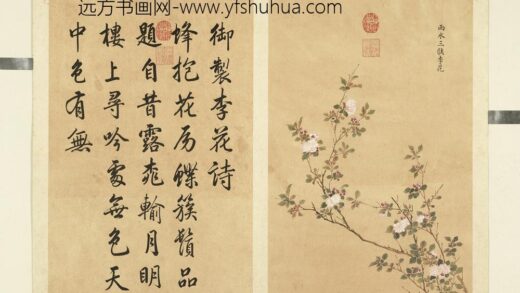 远方书画网-www.yfshuhua.com
雨水三候李花
御製李花詩
蜂抱花房蝶簇鬚品
題自昔露桃輸月明
樓上尋吟處無色天
中色有無